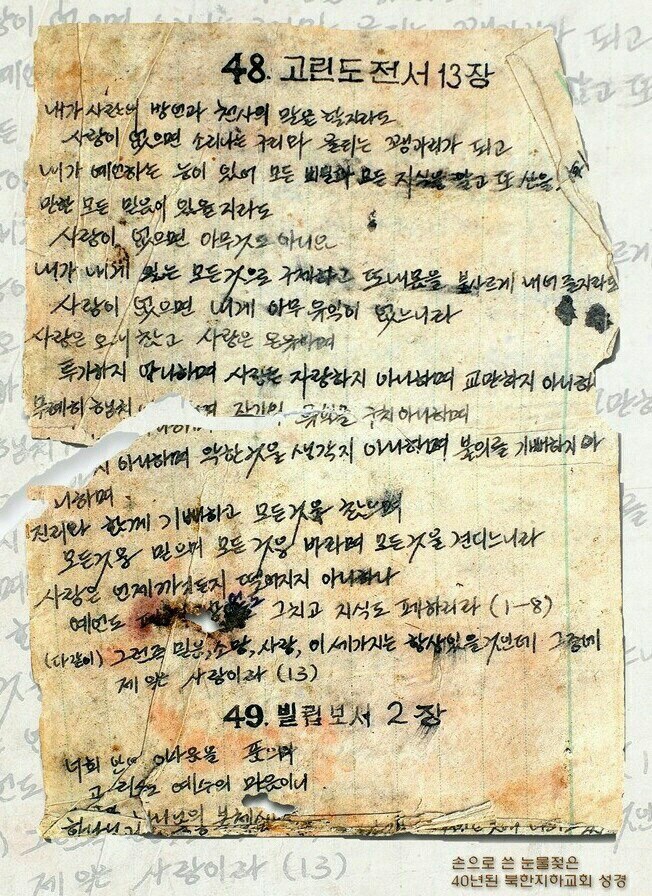 48. 고린도전서 13장
내가 사람의 방언과 천사의 말을 할지라도
사랑이 없으면 소리나는 구리와 울리는 꽹과리가 되고
내가 예언하는 능이 있어 모든 비밀과 모든 지식을 알고 또 산을
만한 모든 믿음이 있을지라도
사랑이 없으면 아무것도 아니요
내가 내게 있는 모든것으로 구제하고 또 내몸을 불사르게 내어 줄지라도
사랑이 없으면 내게 아무 유익이 없느니라
사랑은 오래 참고 사랑은 온유하며
투기하지 아니하며 사랑은 자랑하지 아니하며 교만하지 아니하
무례히 행치 자기의 유익을 구치 아니하며
아니하며 악한것을 생각지 아니하며 불의를 기뻐하지 아
니하며
진리와 함께 기뻐하고 모든것을 참으며
모든것을 믿으며 모든것을 바라며 모든것을 견디느니라
사랑은 언제까지든지 떨어지지 아니하나
예언도 그치고 지식도 폐하리라 (1-8)
(다같이) 그런즉 믿음, 소망, 사랑, 이 세가지는 항상있을것인데 그중에
제일은 사랑이라 (13)
49. 빌립보서 2장
너희 안에 이마음을 품으라
곧 그리스도 예수의 마음이니
본체
제일은 사랑이라 (13)
손으로 쓴 눈물젖은
40년된 북한지하교회 성경